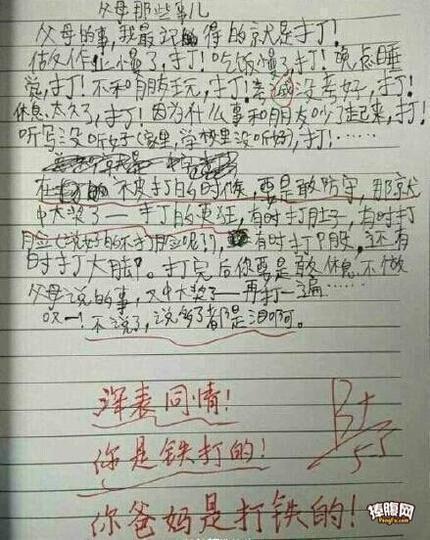 父母那些事儿
父母的事，我最记得的就是打！
做作业慢了，打！吃饭慢了，打！晚点睡
觉，打！不和朋友玩，打！考试没考好，打！
休息太久了，打！因为什么事和朋友吵了起来，打！
听写没听好(家里，学校里没听好)，打！……
在 不皮打的时候，要是敢防守，那就
中大奖了——打的更狂，有时打肚子，有时打
脸(说好的不打脸呢?!)，有时打P股，还有
时打大腿。打完后你要是敢休息不做
父母说的事，又中大奖了——再打一遍……
哎—！不说了，说多了都是泪啊。
深表同情！
你是铁打的！
你爸妈是打铁的！
B+
捧腹网
PengFu.com